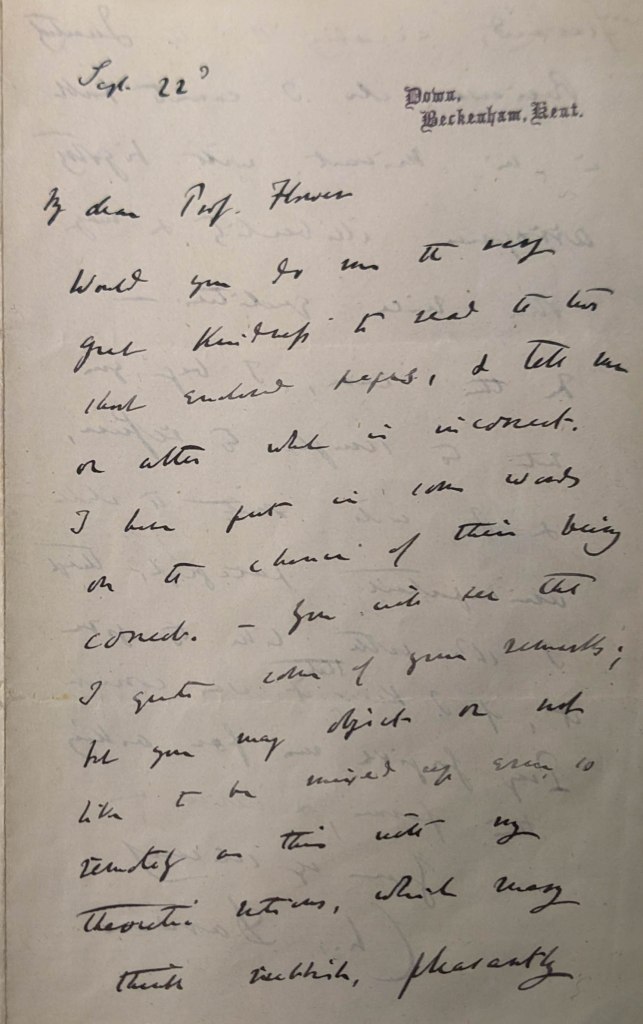 Sept. 22ᵈ
Down,
Beckenham, Kent.
My dear Prof. Flower
Would you do me the very
great kindness to read the two
short enclosed pages, & tell me
or alter what is incorrect.
I have put in some words
on the chance of their being
correct. — You will see that
I quote some of your remarks;
but you may object or not
like to be mixed up even so
remotely as this with my
theoretic notions, which many
think rubbish, pleasantly